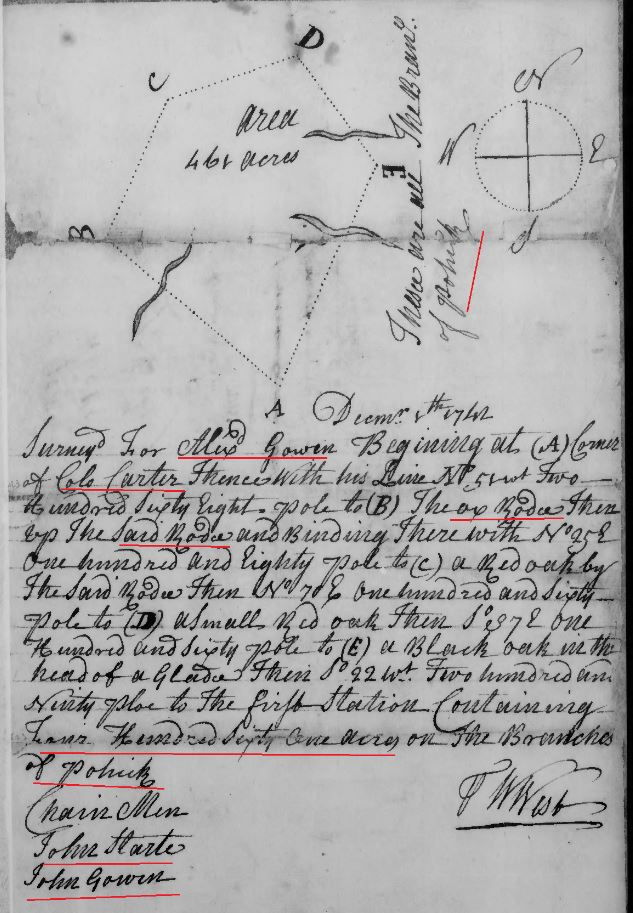 D
C
N
area
461 acres
W
E
E
B
S
These are all The Bran.
of pohick
A
Decmr.
1742
Survey'd For Alexd Gowen Begining at (A) Corner
of Colo Carter Thence With his Line No. 51 wt Two
Hundred Sixty Eight pole to (B) The ox Rode Then
up The Said Rode and Binding There with No. 25 E
One hundred and Eighty pole to (C) a Red oak by
The Said Rode Then No. 70 E One hundred and Sixty
pole to (D) a Small Red oak Then So. 37 E one
Hundred and Sixty pole to (E) a Black oak in the
head of a Glade Then So. 22 wt. Two hundred an
Ninty ploe to The first Station Containing
Four Hundred Sixty One acres on The Branches
of pohick
Chain Men
John Starte
John Gowen
West